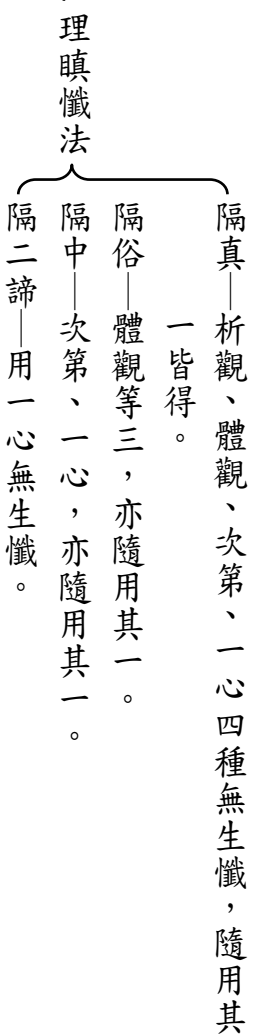 理瞋懺法
隔真—析觀、體觀、次第、一心四種無生懺，隨用其
一皆得。
隔俗—體觀等三，亦隨用其一。
隔中—次第、一心，亦隨用其一。
隔二諦—用一心無生懺。